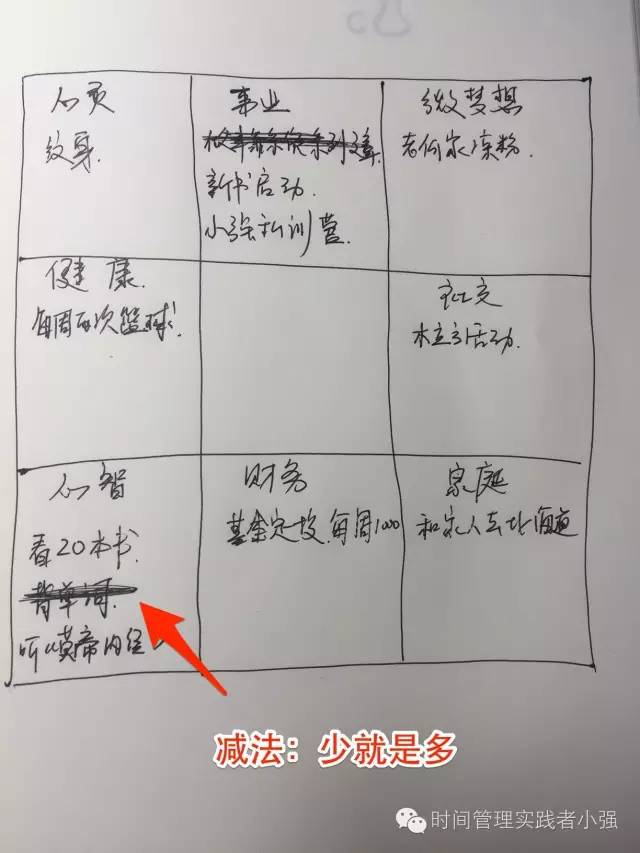 心灵
纹身
事业
新书启动
小强私训营
微梦想
老何家凉粉
健康
每周两次篮球
社交
木立方活动
心智
看20本书
背单词
听《黄帝内经
财务
基金定投 每周1000
家庭
和家人去北海道
减法：少就是多
时间管理实践者小强